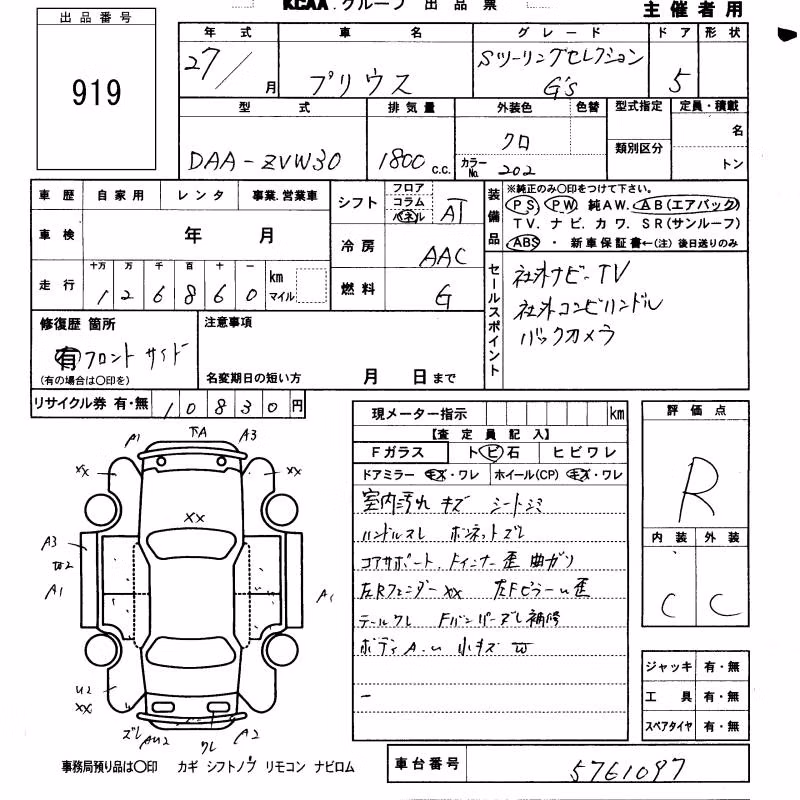 KCAA.グループ 出品票
主催者用
出品番号
919
年式 車名 グレード ドア 形状
27/ 月 プリウス Sツーリングセレクション G's 5
型式 排気量 外装色 色替 型式指定 定員・積載
DAA-ZVW30 1800 c.c. クロ カラーNo. 202 類別区分 名 トン
車歴 自家用 レンタ 事業.営業車
シフト フロア コラム パネル AT
装備品
※純正のみ○印をつけて下さい。
PS PW 純AW. AB(エアバック)
TV. ナビ. カワ. SR(サンルーフ)
ABS ・ 新車保証書←(注) 後日送りのみ
車検 年 月
冷房 AAC
走行 十万 万 千 百 十 一
126860 km マイル
燃料 G
セールスポイント
社外ナビ-TV
社外コンビハンドル
バックカメラ
修復歴 箇所
有 フロント サイド
(有の場合は○印を)
注意事項
名変期日の短い方 月 日まで
リサイクル券 有・無 10830円
現メーター指示 km
【査定員記入】
Fガラス トビ石 ヒビワレ
ドアミラー キズ・ワレ ホイール(CP) キズ・ワレ
室内汚れ キズ シートシミ
ハンドルスレ ボンネットズレ
コアサポート. Fインナー歪 曲ガリ
左Rフェンダーxx 左Fピラーu歪
テールワレ Fバンパーズレ補修
ボディA.u 小キズ W
-
評価点
R
内装 外装
C C
ジャッキ 有・無
工具 有・無
スペアタイヤ 有・無
P1 下A A3
xx xx
xx
A3
A1 A1
U2
xx
ズレ AU2 ワレ A2
事務局預り品は○印 カギ シフトノブ リモコン ナビロム
車台番号 5761097